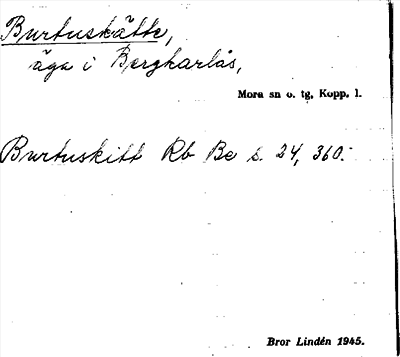 Burtuskätte,
äga i Bergkarlås,
Mora sn o. tg, Kopp. l.
Burtuskitt Rb Be s. 24, 360.
Bror Lindén 1945.